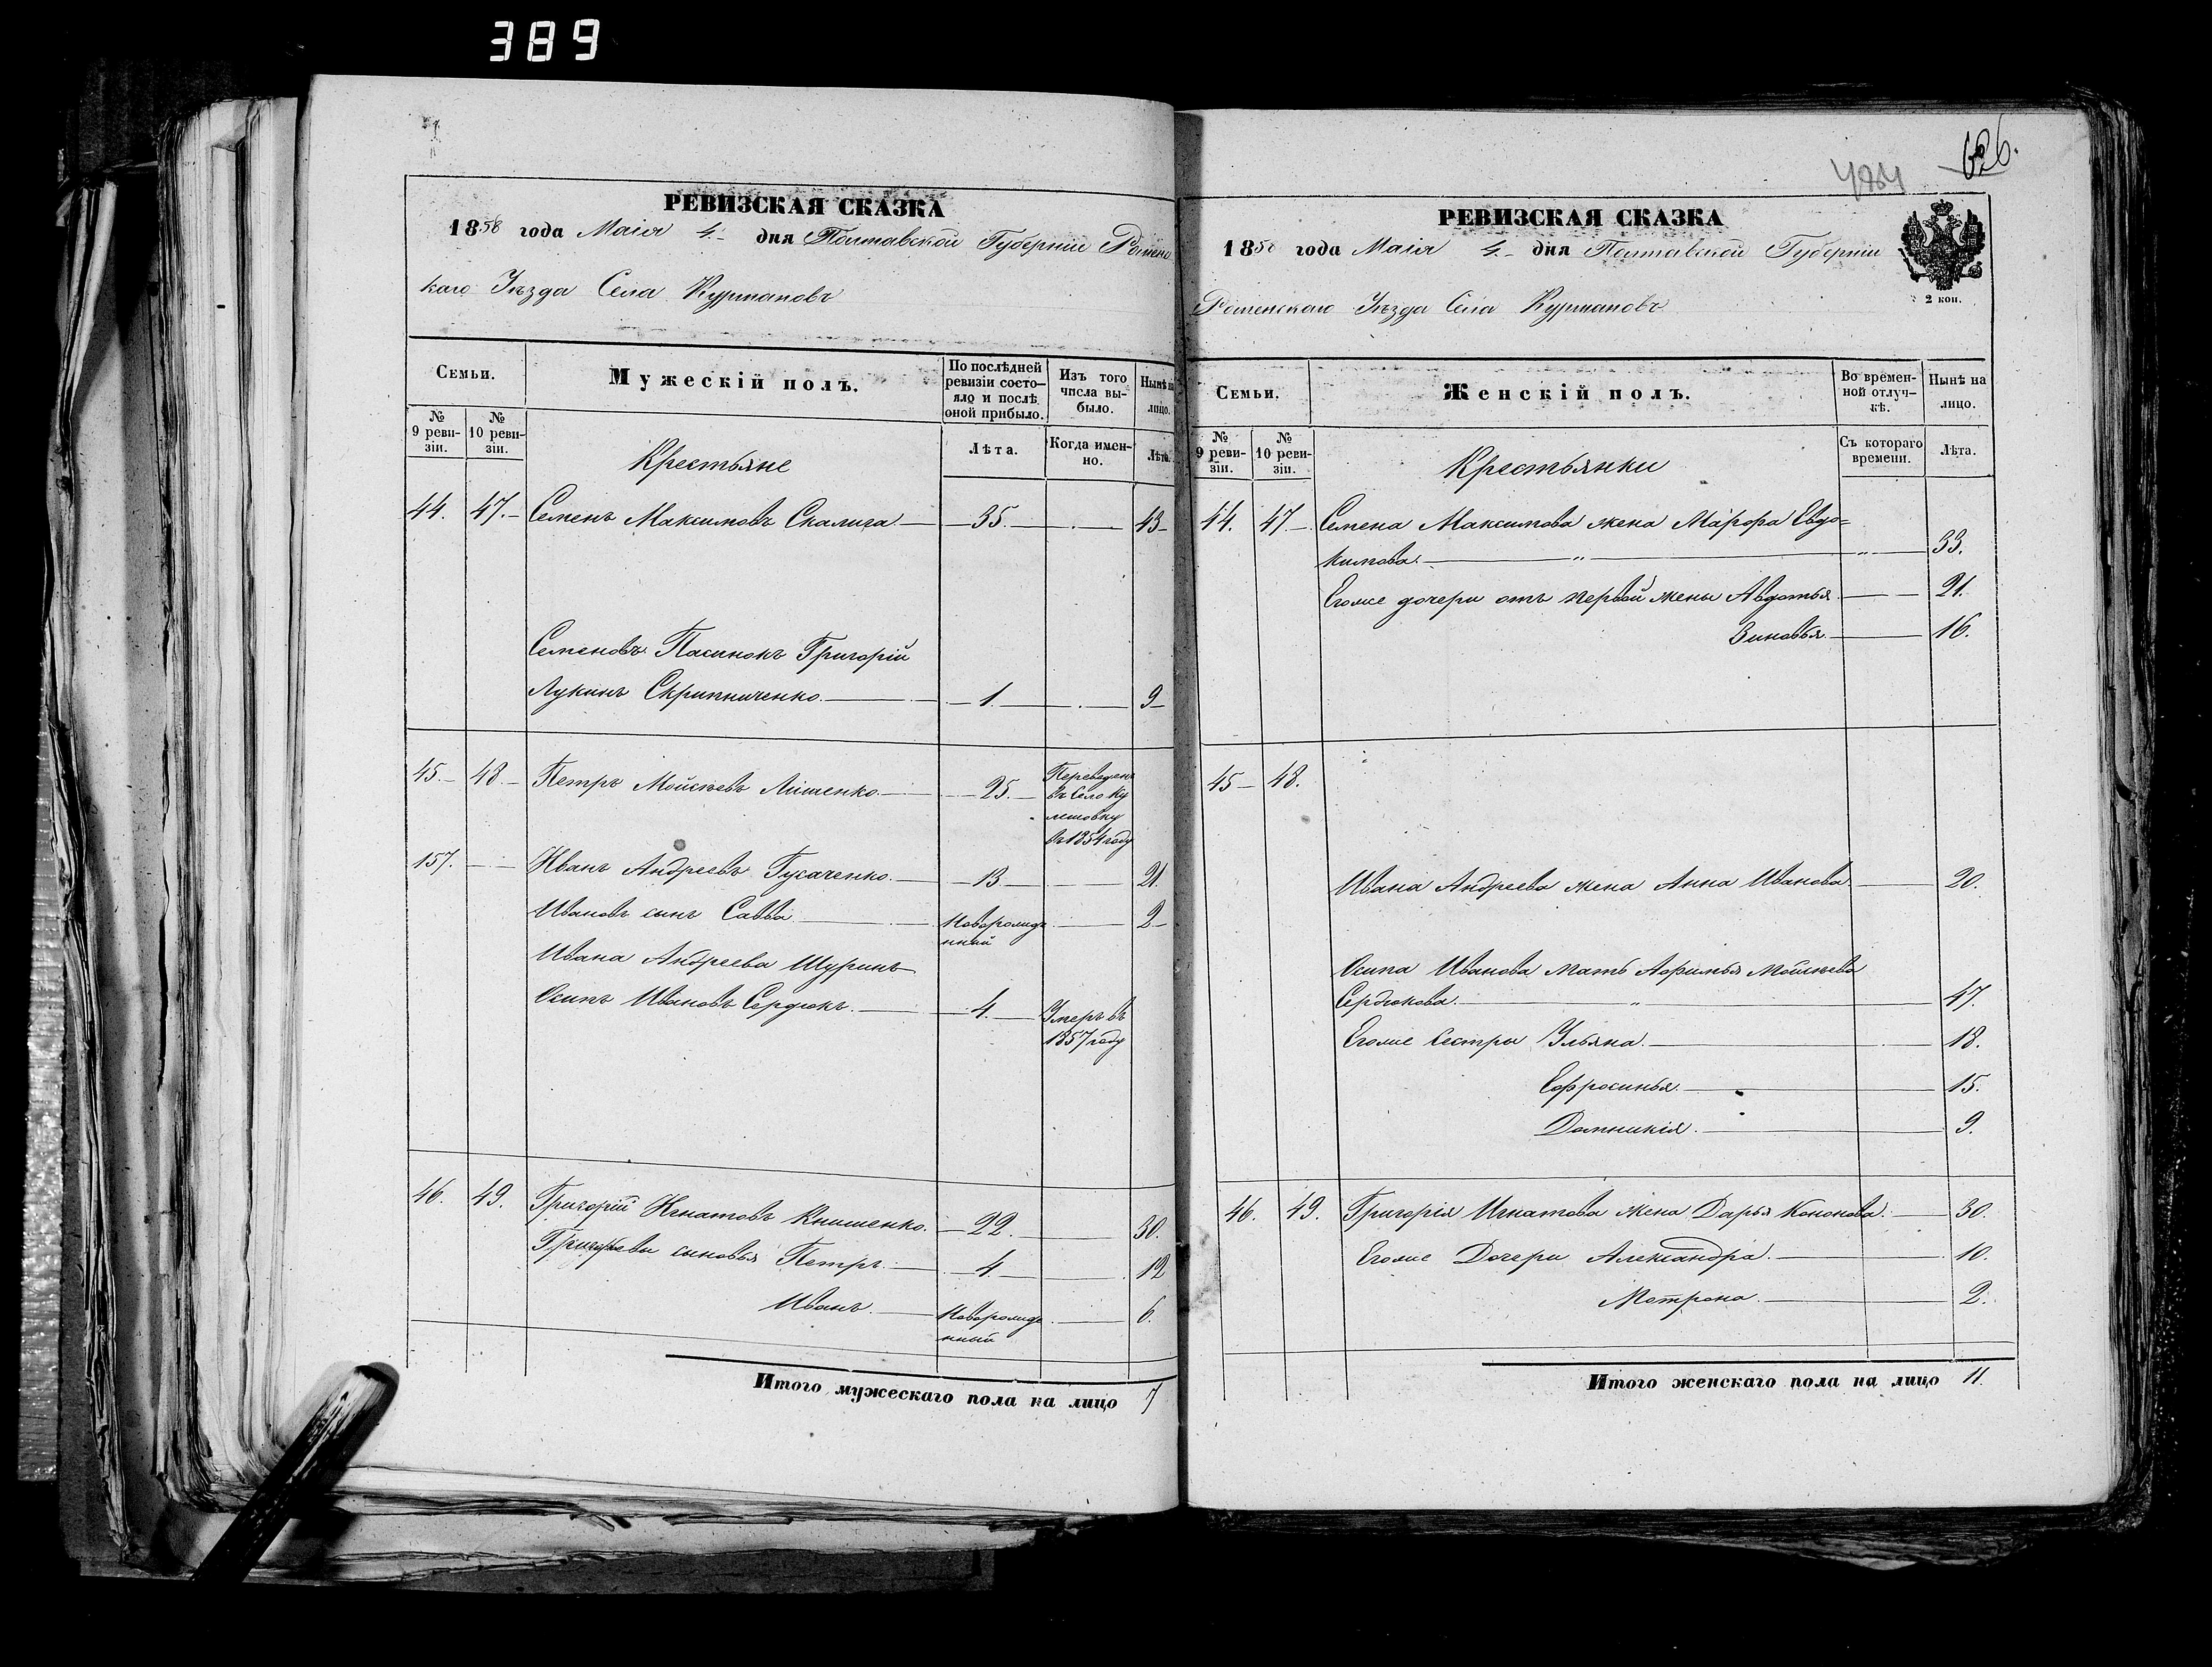 389
РЕВИЗСКАЯ СКАЗКА
1858 года Маія 4.- дня Полтавской Губерніи Роменс
каго Уѣзда Села Курмановъ
Семьи.
Мужескій полъ.
По послѣдней ревизіи состо- яло и послѣ оной прибыло.
Изъ того числа вы- было.
Нынѣ на лицо.
№ 9 реви- зіи.
№ 10 реви- зіи.
Лѣта.
Когда имен- но.
Лѣта.
Крестьяне
44. 47.- Семенъ Максимовъ Скалига 35. 43
Семеновъ Пасинокъ Григорій
Лукинъ Скрипниченко 1. 9
45.- 48.- Петръ Мойсѣевъ Лишенко 25. Переведенъ
въ Село Ку
лешовку
въ 1854 году
157. Иванъ Андреевъ Гусаченко 13 21
Ивановъ сынъ Савва Новорожде 2
нный
Ивана Андреева Шуринъ
Осипъ Ивановъ Сердюкъ 4. Умеръ въ
1857 году
46. 49. Григорій Игнатовъ Книшенко 22. 30.
Григорьевы сыновья Петръ 4 12
Иванъ Новорожде 6.
нный
Итого мужескаго пола на лицо 7
626.
РЕВИЗСКАЯ СКАЗКА
1858 года Маія 4.- дня Полтавской Губерніи
Роменскаго Уѣзда Села Курмановъ
2 коп.
Семьи.
Женскій полъ.
Во времен- ной отлуч- кѣ.
Нынѣ на лицо.
№ 9 реви- зіи.
№ 10 реви- зіи.
Съ котораго времени.
Лѣта.
Крестьянки
44. 47. Семена Максимова жена Марфа Евдо=
кимова " " 33.
Егоже дочери отъ первой жены Авдотья 21.
Зиновья 16.
45 48.
Ивана Андреева жена Анна Иванова 20.
Осипа Иванова мать Афимья Мойсѣева
Сердюкова " 47.
Егоже сестры Ульяна 18.
Ефросинья 15.
Домникія 9.
46. 49. Григорія Игнатова жена Дарья Кононова 30.
Егоже Дочери Александра 10.
Мотрона 2.
Итого женскаго пола на лицо 11.